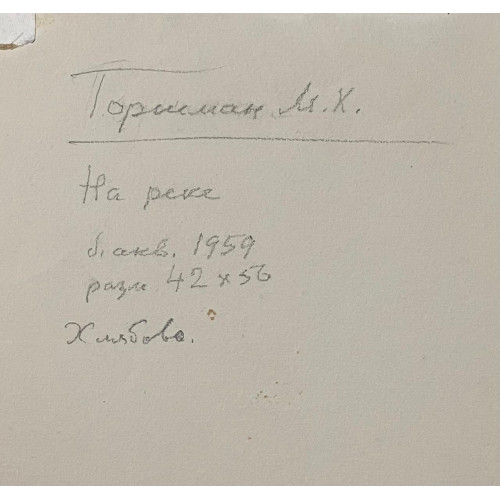 Горшман М.Х.
На реке
б. акв. 1959
разм. 42 x 56
Хлябово.